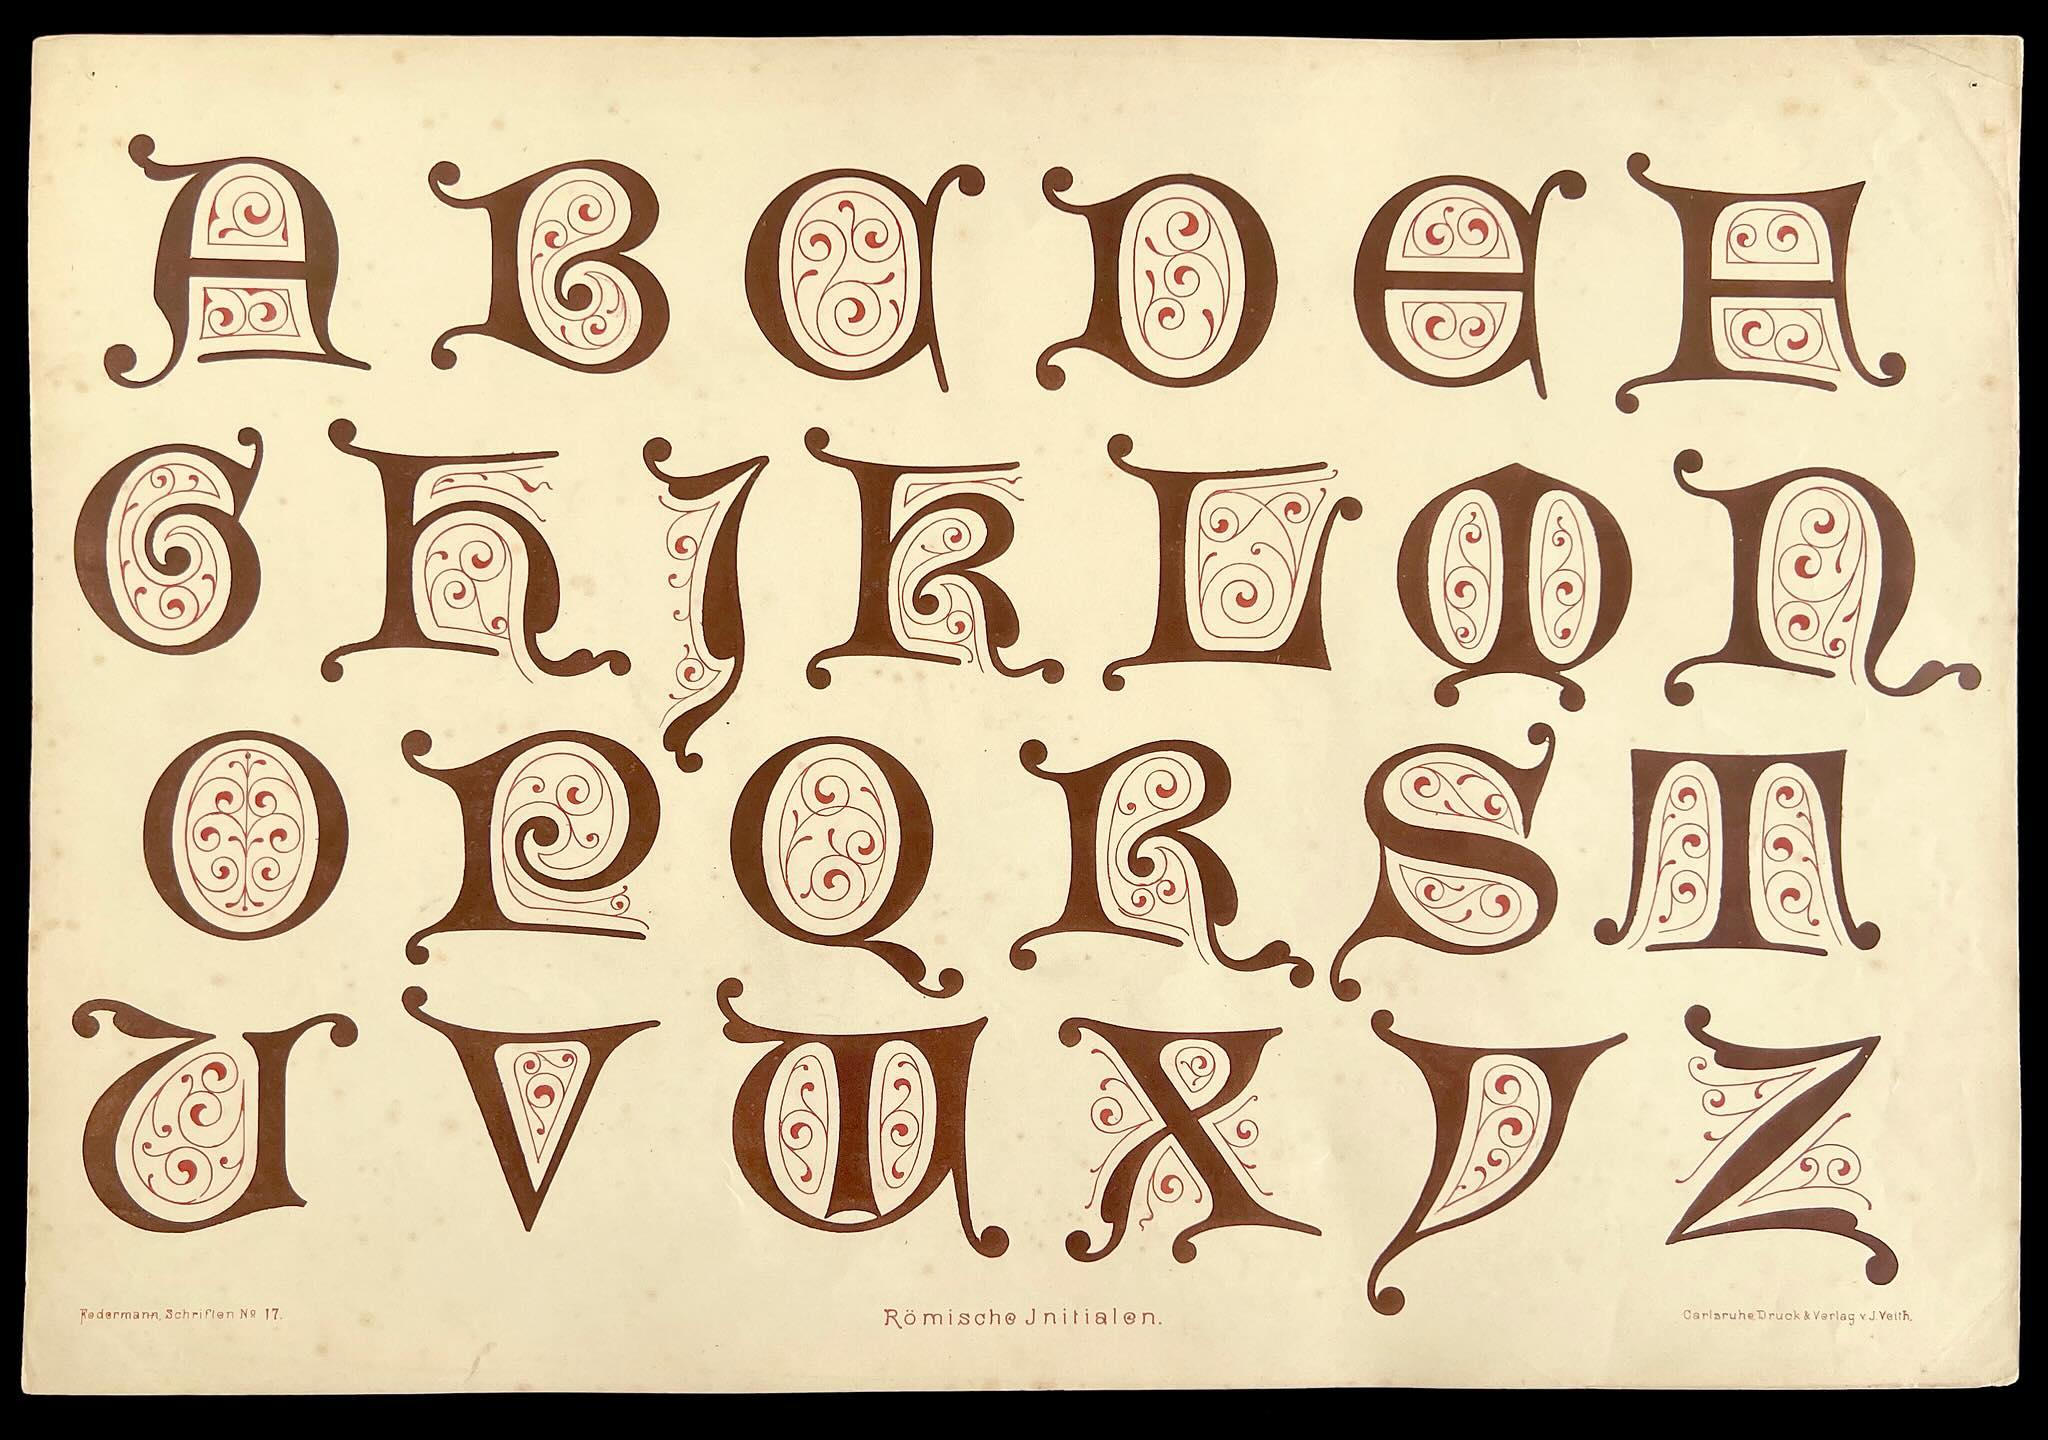 A B C D E F
G H J K L M N
O P Q R S T
U V W X Y Z
Federmann, Schriften No 17.
Römische Jnitialen.
Carlsruhe Druck & Verlag v. J. Veith.